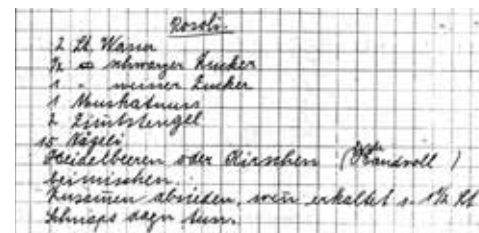 Rosoli.
2 Lt. Wasser
1/2 " schwarzer Zucker
1 " weisser Zucker
1 Muskatnuss
2 Zimtstengel
15 Nägeli
Heidelbeeren oder Kirschen (Handvoll)
beimischen.
Zusammen absieden, wenn erkaltet s. 1 1/2 Lt
Schnaps dazu tun.